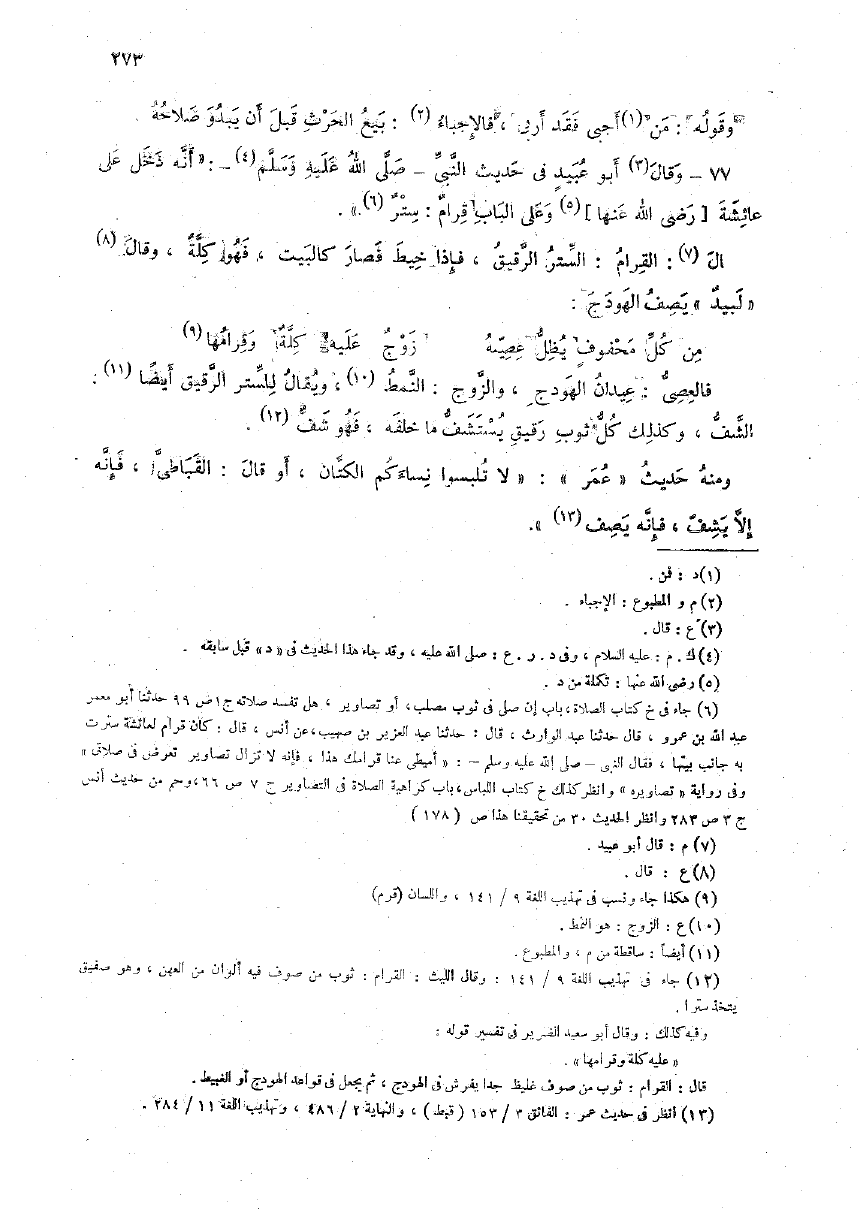 ٢٧٣
«وقَولُه» : مَن «(١) أَجبى فَقَد أَربى»، فالإجباءُ (٢) : بَيعُ الحَرْثِ قَبلَ أَن يَبدُوَ صَلاحُهُ .
٧٧ – وَقالَ(٣) أَبو عُبَيدٍ فى حَديث النَّبيِّ – صَلَّى اللهُ عَلَيهِ وَسَلَّم(٤) – : «أَنَّه دَخَل عَلى
عائِشَةَ [ رَضى الله عَنها ] (٥) وَعَلى البَابِ قِرامٌ : سِتْرٌ (٦) » .
الَ (٧) : القِرامُ : السِّترُ الرَّقيقُ ، فإذا خِيطَ فَصارَ كالبَيت ، فَهُو كِلَّةٌ ، وقالَ (٨)
« لَبيدٌ » يَصِفُ الهَودَجَ :
مِن كُلِّ مَحْفوفٍ يُظِلُّ عِصِيّهُ زَوْجٌ عَلَيهِ كِلَّةٌ وَقِرامُها (٩)
فالعِصِيُّ : عِيدانُ الهَودجِ ، والزَّوج : النَّمطُ (١٠) ، ويُقالُ لِلسِّتر الرَّقيق أَيضًا (١١) :
الشَّفُّ ، وكذلِك كُلُّ ثوبٍ رَقيقٍ يُسْتَشَفُّ ما خلفَه ، فَهُو شَفٌّ (١٢) .
ومنهُ حَديثُ « عُمَر » : « لا تُلبسوا نِساءَكم الكتَّان ، أَو قالَ : القَبَاطىَّ ، فَإِنَّه
إلاَّ يَشِفّ ، فإنَّه يَصِف (١٣) » .
(١) د : فن .
(٢) م و المطبوع : الإجباء .
(٣) ع : قال .
(٤) ك . م : عليه السلام ، وفى د . ر . ع : صلى الله عليه ، وقد جاء هذا الحديث فى « د » قبل سابقه .
(٥) رضى الله عنها : تكلة من د .
(٦) جاء فى خ كتاب الصلاة، باب إن صلى فى ثوب مصلب، أو تصاوير ، هل تفسد صلاته ج١ ص ٩٩ حدثنا أبو معمر
عبد الله بن عمرو ، قال حدثنا عبد الوارث ، قال : حدثنا عبد العزيز بن صهيب، عن أنس ، قال : كان قرام لعائشة سترت
به جانب بيتها ، فقال النبى – صلى الله عليه وسلم – : « أميطى عنا قرامك هذا ، فإنه لا تزال تصاوير تعرض فى صلاتى »
وفى رواية « تصاويره » وانظر كذلك خ كتاب اللباس، باب كراهية الصلاة فى التصاوير ج ٧ ص ٦٦، وحم من حديث أنس
ج ٣ ص ٢٨٣ وانظر الحديث ٣٠ من تحقيقنا هذا ص ( ١٧٨ )
(٧) م : قال أبو عبيد .
(٨) ع : قال .
(٩) هكذا جاء ونسب فى تهذيب اللغة ٩ / ١٤١ ، واللسان (قرم)
(١٠) ع : الزوج : هو النمط .
(١١) أيضاً : ساقطة من م ، والمطبوع .
(١٢) جاء فى تهذيب اللغة ٩ / ١٤١ : وقال الليث : القرام : ثوب من صوف فيه ألوان من العهن ، وهو صفيق
يتخذ سترا .
وفيه كذلك : وقال أبو سعيد الضرير فى تفسير قوله :
« عليه كلة وقرامها » .
قال : القرام : ثوب من صوف غليظ جدا يفرش فى الهودج ، ثم يجعل فى قواعد الهودج أو الغبيط .
(١٣) انظر فى حديث عمر : الفائق ٣ / ١٥٣ ( قبط ) ، والنهاية ٢ / ٤٨٦ ، وتهذيب اللغة ١١ / ٢٨٤ .